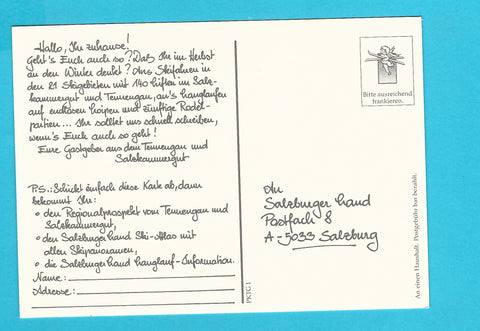 Hallo, Ihr zuhause!
Geht's Euch auch so? Daß Ihr im Herbst
an den Winter denkt? Ans Skifahren in
den 21 Skigebieten mit 140 Liften im Salz-
kammergut und Tennengau, an's Langlaufen
auf endlosen Loipen und zünftige Rodel-
partien... Ihr solltet uns schnell schreiben,
wenn's Euch auch so geht!
Eure Gastgeber aus dem Tennengau und
Salzkammergut
P.S.: Schickt einfach diese Karte ab, dann
bekommt Ihr:
• den Regionalprospekt vom Tennengau und
Salzkammergut,
• den Salzburger Land Ski-Atlas mit
allen Skipanoramen,
• die Salzburger Land Langlauf-Information.
Name:
Adresse:
PKTG 1
Bitte ausreichend
frankieren.
An
Salzburger Land
Postfach 8
A-5033 Salzburg
An einen Haushalt. Postgebühr bar bezahlt.